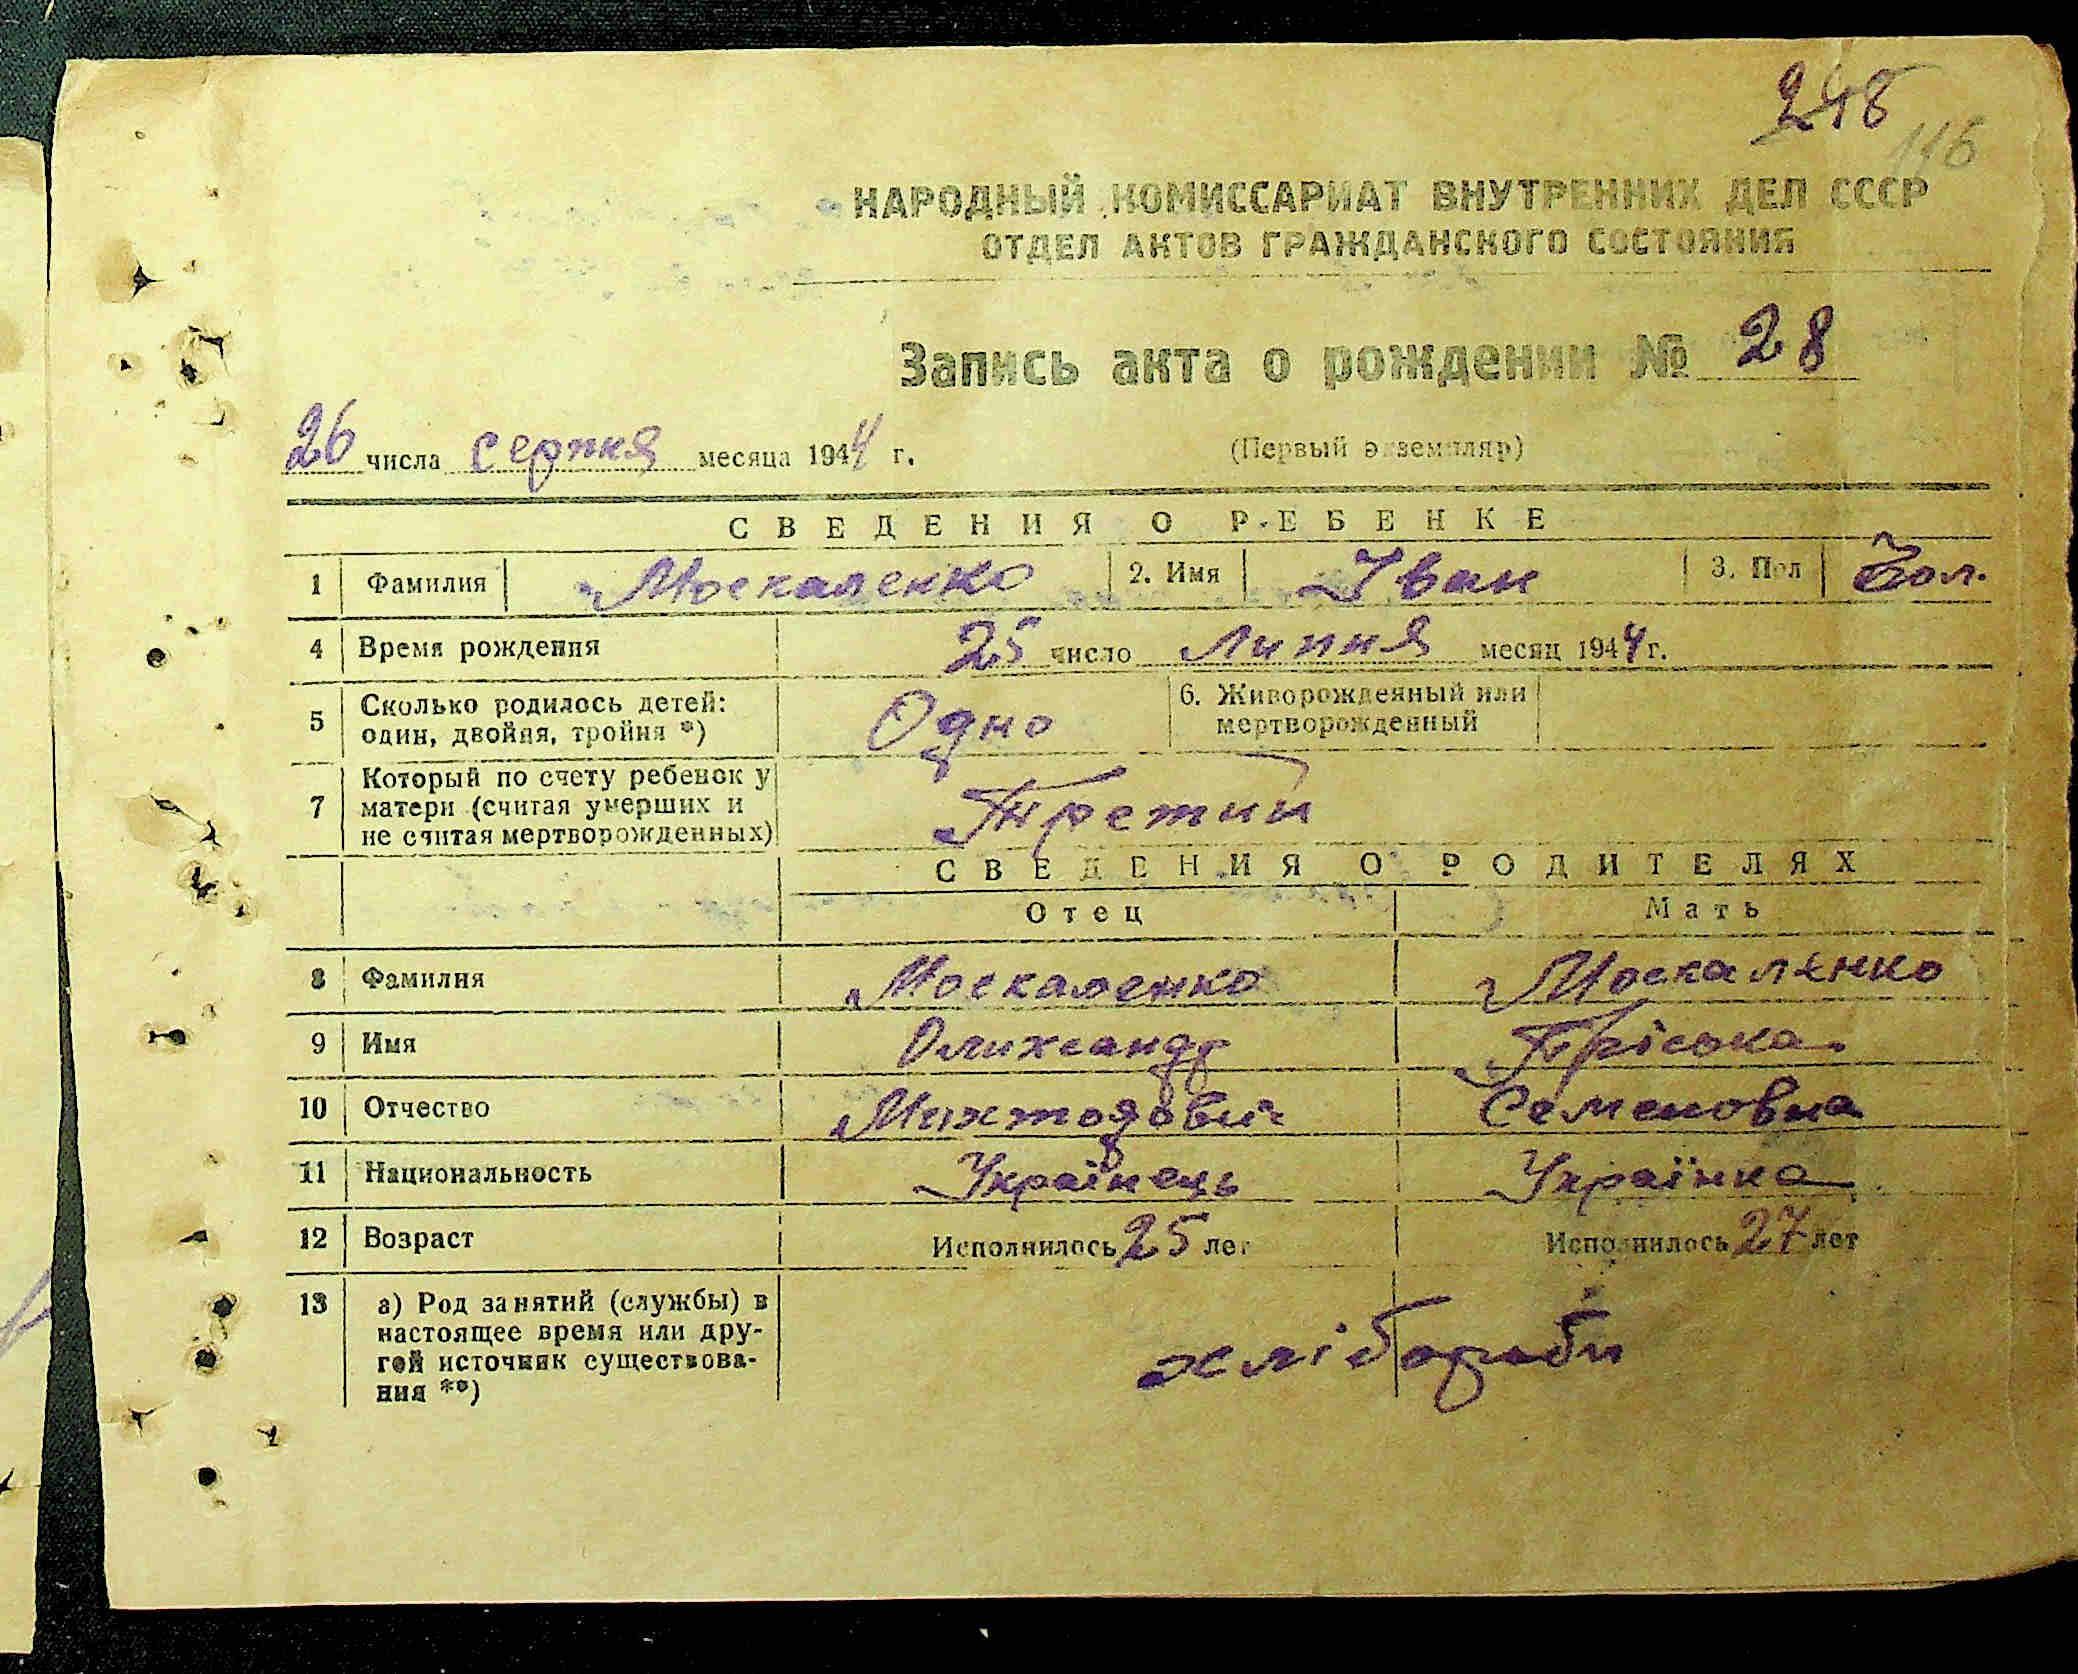 248
116
НАРОДНЫЙ КОМИССАРИАТ ВНУТРЕННИХ ДЕЛ СССР
ОТДЕЛ АКТОВ ГРАЖДАНСКОГО СОСТОЯНИЯ
Запись акта о рождении № 28
26 числа серпня месяца 1944 г. (Первый экземпляр)
СВЕДЕНИЯ О РЕБЕНКЕ
1 Фамилия Москаленко 2. Имя Іван 3. Пол Чол.
4 Время рождения 25 число Липня месяц 1944 г.
5 Сколько родилось детей: один, двойня, тройня *) Одно 6. Живорожденный или мертворожденный
7 Который по счету ребенок у матери (считая умерших и не считая мертворожденных) Третий
СВЕДЕНИЯ О РОДИТЕЛЯХ
Отец Мать
8 Фамилия Москаленко Москалянко
9 Имя Олихсандр Пріська
10 Отчество Михтодович Семеновна
11 Национальность Українець Українка
12 Возраст Исполнилось 25 лет Исполнилось 27 лет
13 а) Род занятий (службы) в
настоящее время или дру-
гой источник существова-
ния **)
хлібороби